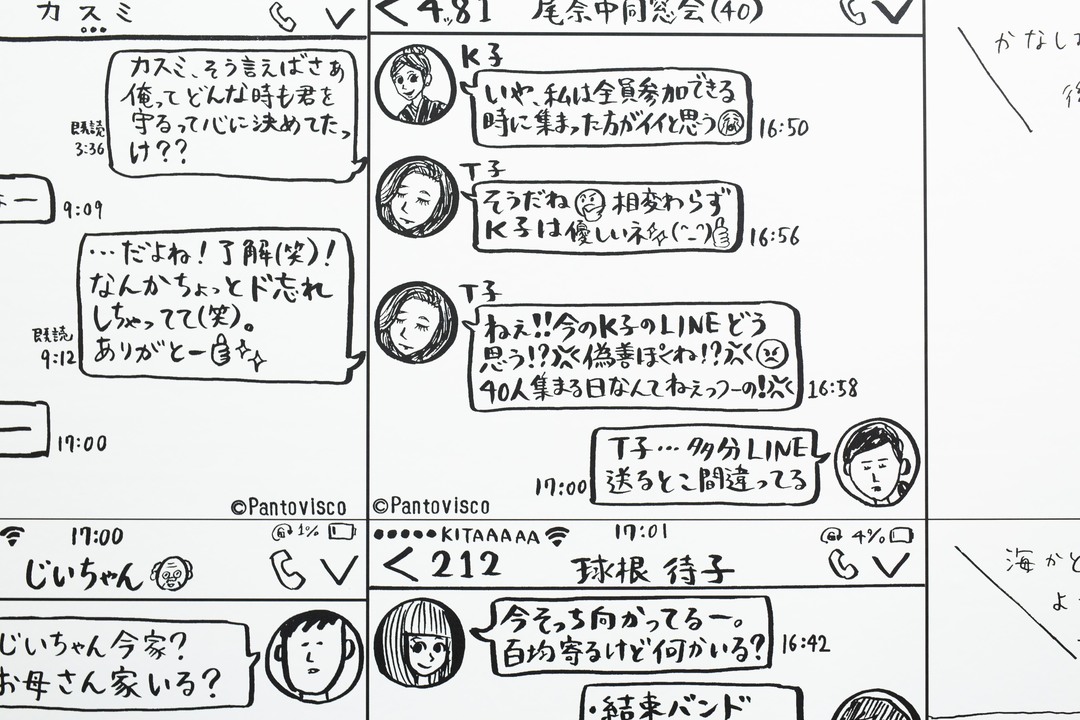 カスミ
カスミ、そう言えばさぁ
俺ってどんな時も君を
守るって心に決めてたっ
け??
既読
3:36
9:09
…だよね!了解(笑)!
なんかちょっとド忘れ
しちゃってて(笑)。
ありがとー
既読
9:12
17:00
©Pantovisco
< 4,81 尾奈中同窓会(40)
K子
いや、私は全員参加できる
時に集まった方がイイと思う
16:50
T子
そうだね 相変わらず
K子は優しいネ(^_^)
16:56
T子
ねぇ!!今のK子のLINEどう
思う!?偽善ぽくね!?
40人集まる日なんてねぇっつーの!
16:58
T子…多分LINE
送るとこ間違ってる
17:00
©Pantovisco
17:00 1%
じいちゃん
じいちゃん今家?
お母さん家いる?
KITAAAAA 17:01 4%
< 212 球根 待子
今そっち向かってるー。
百均寄るけど何かいる?
16:42
・結束バンド
かなし
後
海かと
よ